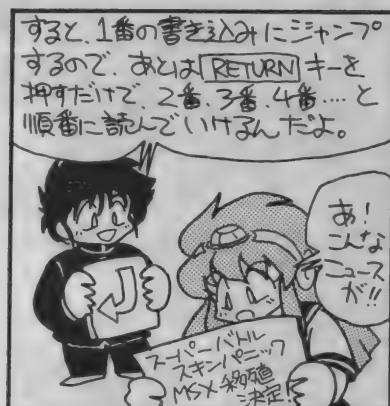 すると、1番の書き込みにジャンプ
するので、あとは RETURN キーを
押すだけで、2番、3番、4番‥‥と
順番に読んでいけるんだよ。
あ!
こんな
ニュース
が!!
スーパーバトル
スキンパニック
MSX移殖
決定!